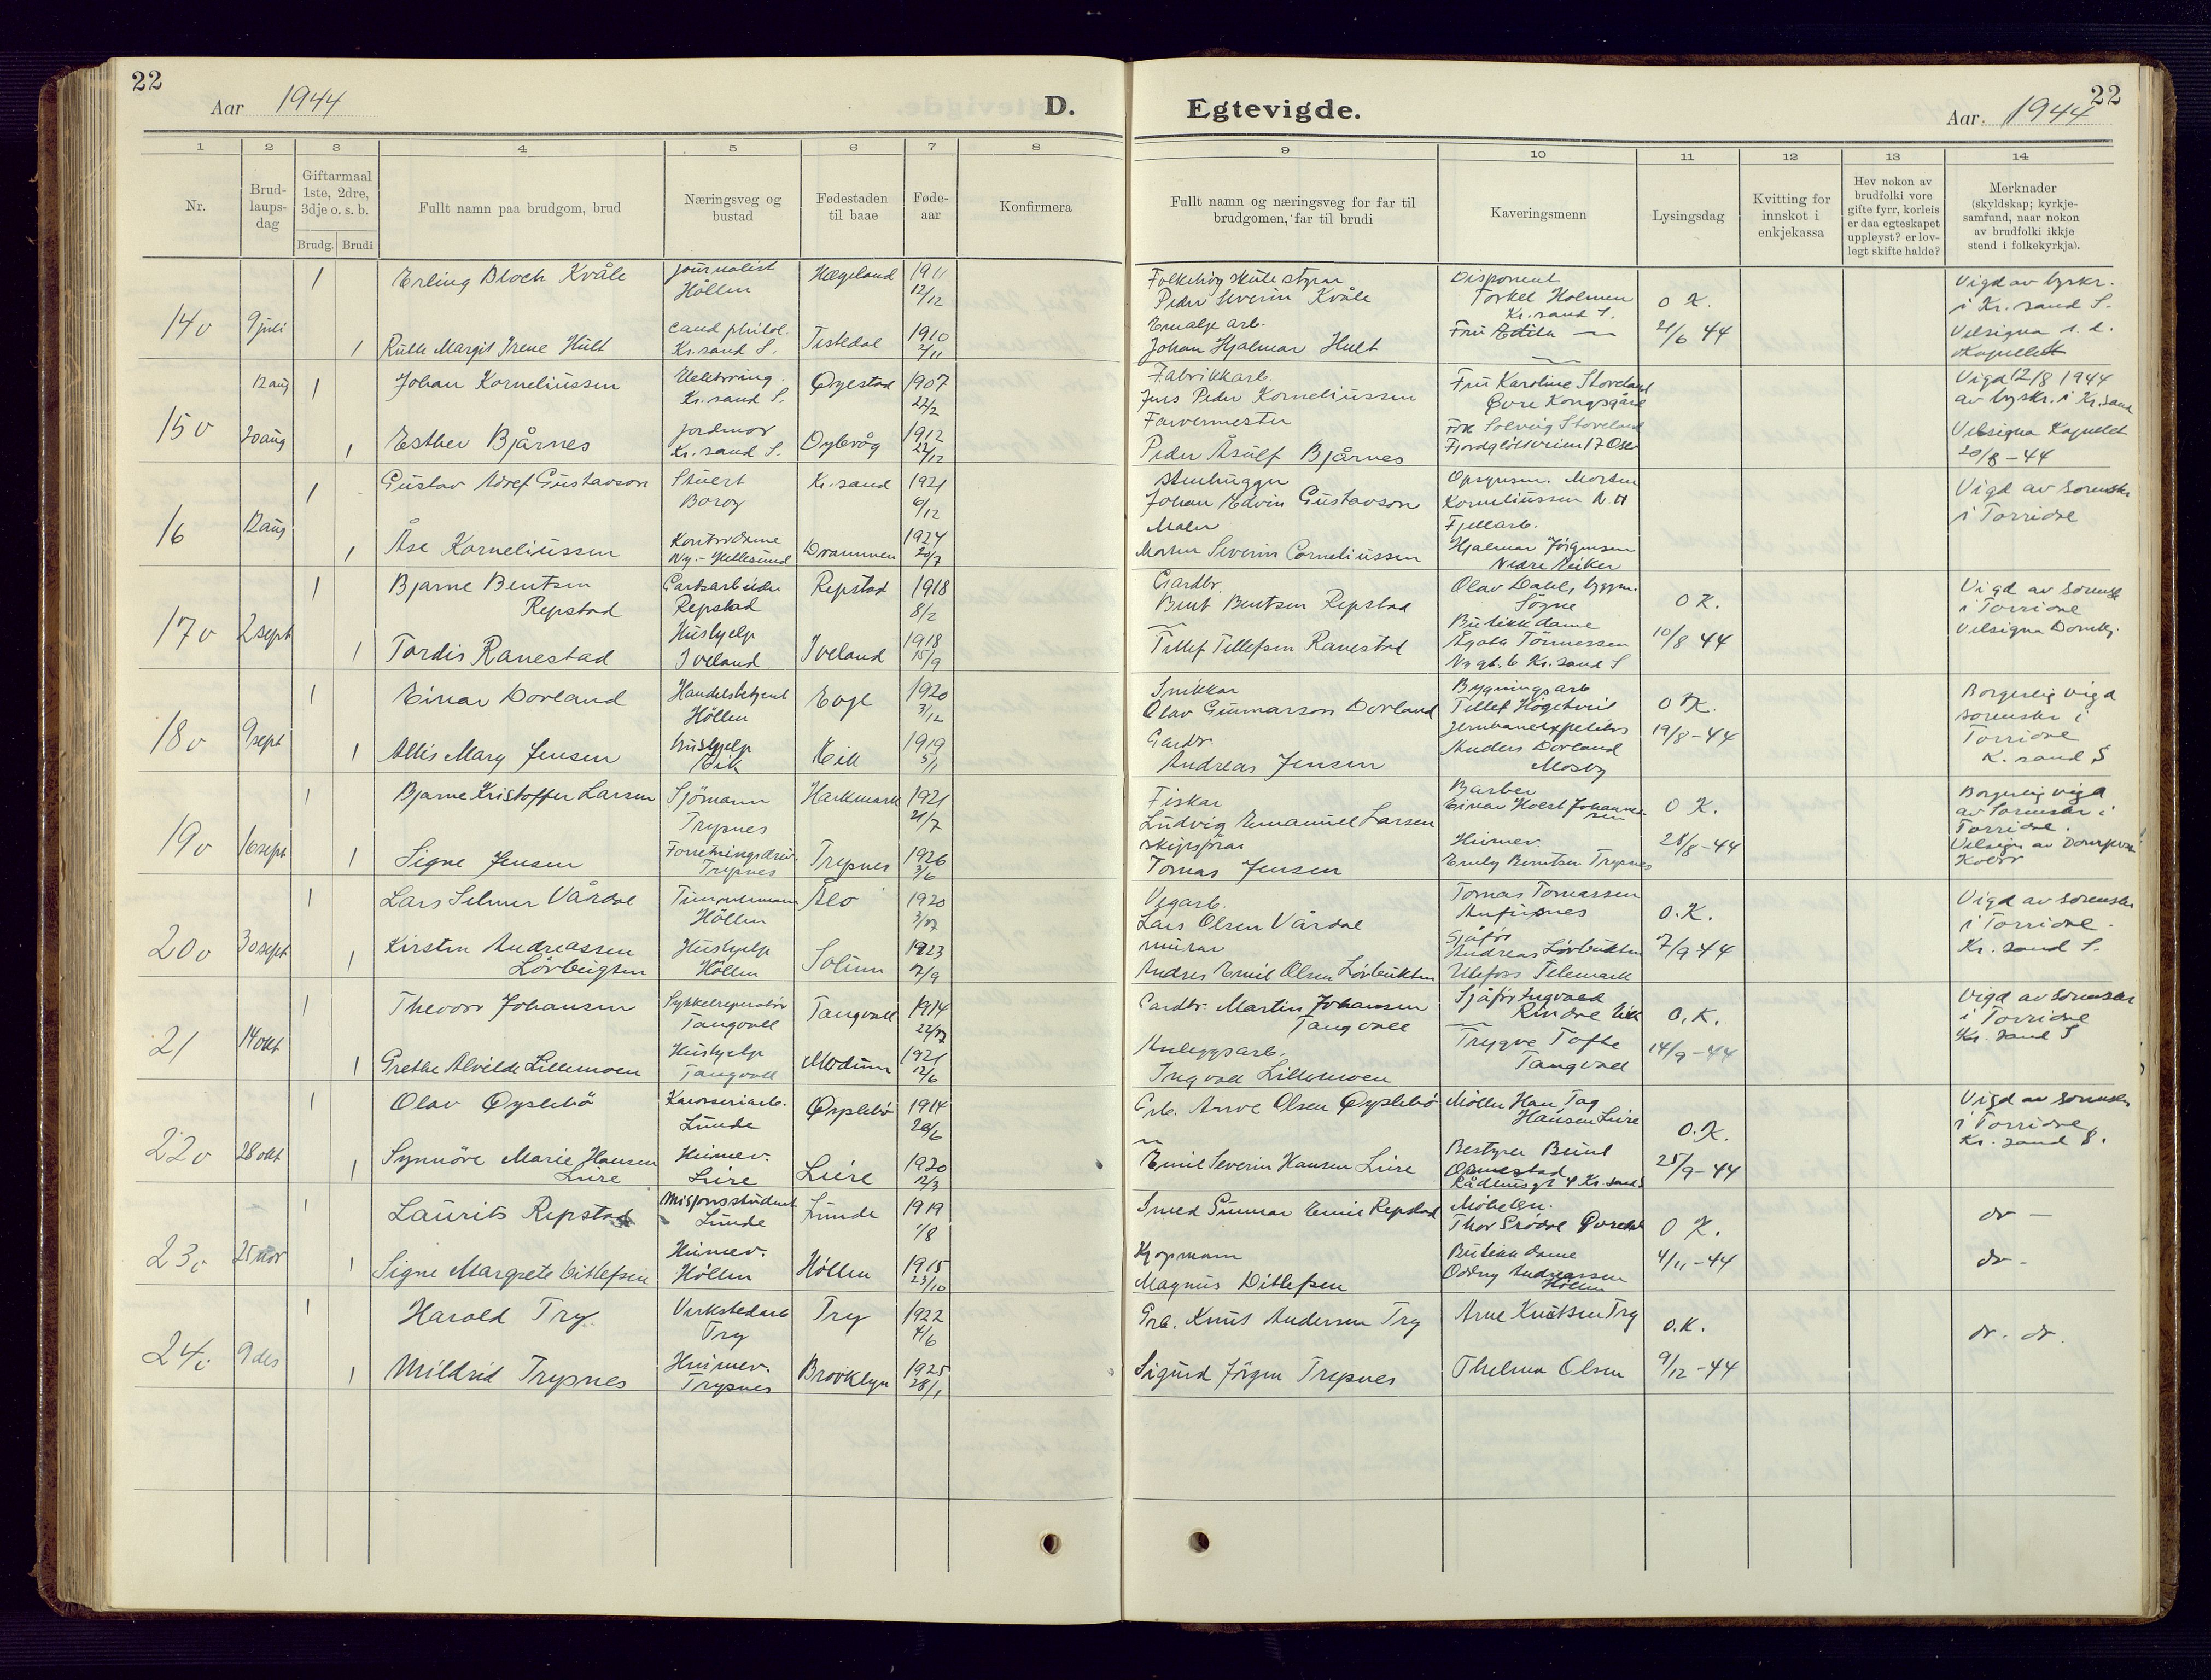 22
Aar 1944
D.
Egtevigde.
22
Aar. 1944
1 2 3 4 5 6 7 8
9 10 11 12 13 14
Nr.
Brud-
laups-
dag
Giftarmaal
1ste, 2dre,
3dje o. s. b.
Brudg. Brudi
Fullt namn paa brudgom, brud
Næringsveg og
bustad
Fødestaden
til baae
Føde-
aar
Konfirmera
Fullt namn og næringsveg for far til
brudgomen, far til brudi
Kaveringsmenn
Lysingsdag
Kvitting for
innskot i
enkjekassa
Hev nokon av
brudfolki vore
gifte fyrr, korleis
er daa egteskapet
uppløyst? er lov-
legt skifte halde?
Merknader
(skyldskap; kyrkje-
samfund, naar nokon
av brudfolki ikkje
stend i folkekyrkja).
14 9 juli
1 Erling Bloch Kvåle
journalist
Höllen
Hægeland
1911
12/12
Folkehøgskulestyrar
Peder Severin Kvåle
Disponent
Torkel Holmen
Kr. sand S.
O K.
Vigd av byskr.
i Kr. sand S.
1 Ruth Margit Irene Hult
cand philol.
Kr. sand S.
Tistedal
1910
2/11
Emalje arb.
Johan Hjalmar Hult
Fru
21/6 44
Velsigna s. d.
Kapellet
15 12 aug
20 aug
1 Johan Korneliussen
Kr. sand S.
Øyestad
1907
22/2
Fabrikkarb.
Jens Peder Korneliussen
Fru Karoline Stoveland
Övre Kongsgård
Vigd 12/8 1944
av byskr. i Kr. sand
1 Esther Bjårnes
jordmor
Kr. sand S.
Dybvåg
1912
22/12
Farvermester
Peder Åsulf Bjårnes
Frk Solveig Stoveland
17 Oslo
Velsigna Kapellet
20/8 - 44
16 12 aug
1 Gustav Adolf Gustavson
Stuert
Borøy
Kr. sand
1921
6/12
Stenhugger
Johan Edvin Gustavson
Opsynsm. Morten
Korneliussen N. H
Vigd av sorenskr
i Torridal
1 Åse Korneliussen
Kontordame
Ny-Hellesund
Drammen
1924
20/7
Maler
Morten Severin Corneliussen
Fjellarb.
Hjalmar Jörgensen
Nedre Eiker
17 2 sept
1 Bjarne Bentsen
Repstad
Gardsarbeider
Repstad
Repstad
1918
8/2
Gardbr.
Bent Bentsen Repstad
Olav Dahl, byggm.
Søgne
O K.
Vigd av sorensk
i Torridal
1 Tordis Ranestad
Hushjelp
Iveland
Iveland
1918
15/9
Tellef Tellefsen Ranestad
Butikkdame
Ågata Tönnessen
Kr. sand S
10/8 44
Velsigna Domkj.
18 9 sept
1 Einar Dovland
Handelsbetjent
Höllen
Evje
1920
3/12
Snikkar
Olav Gunnarson Dovland
Bygningsarb
Tellef
O K.
Borgerlig vigd
sorenskr i
Torridal
K. sand S
1 Allis Mary Jensen
hushjelp
Eik
Eik
1919
5/1
Gardbr.
Andreas Jensen
Jernbaneexpeditör
Anders Dovland
Mosby
19/8-44
19 16 sept
1 Bjarne Kristoffer Larsen
Sjömann
Trysnes
Harkmark
1921
21/7
Fiskar
Ludvig Emanuel Larsen
Barber
Einar Holst Johannessen
O K.
Borgerlig vigd
av Sorenskr i
Torridal.
1 Signe Jensen
Trysnes
Trysnes
1926
3/6
skipsförar
Tomas Jensen
Heimev.
Emely Berntsen Trysnes
28/8-44
20 30 sept
1 Lars Selmer Vårdal
Tømmermann
Höllen
1920
Vegarb.
Lars Olsen Vårdal
Tomas Tomassen
Aufinnes
O. K.
Vigd av sorenskr
i Torridal
Kr. sand S.
1 Kirsten Andreassen
Lövbugten
Hushjelp
Höllen
Solum
1923
murar
Andres Emil Olsen Lövbukten
Sjåför
Andreas Lövbukten
Ulefoss Telemark
7/9-44
21 14 okt
1 Theodor Johansen
Sykkelreparatör
Tangvall
Tangvall
1914
Gardbr. Martin Johansen
Tangvall
Sjåför Ingvald
Rindal Eik
O. K.
Vigd av sorenskr
i Torridal
Kr. sand S
1 Grethe Alvilde Lillemoen
Hushjelp
Tangvall
Modum
1921
12/6
Anleggsarb.
Ingvald Lillemoen
Trygve Tofte
Tangvall
14/9-44
22 28 okt
1 Olav Øyslebö
Karosseriarb.
Lunde
Øyslebö
1914
26/6
Arve Olsen Øyslebö
Möller Han Tag
Hansen Leire
O. K.
Vigd av sorenskr
i Torridal
Kr. sand S.
1 Synnöve Marie Hansen
Leire
Heimev.
Leire
Leire
1920
12/3
Emil Severin Hansen Leire
Bestyrer Bernt
Rådhusgt 4 Kr. sand S
25/9-44
23 25 nov
1 Laurits Repstad
Misjonsstudent
Lunde
Lunde
1919
1/8
Smed Gunnar Emil Repstad
Thor
O K.
do -
1 Signe Margrete Ditlefsen
Heimev.
Höllen
Höllen
1915
23/10
Kjøpmann
Magnus Ditlefsen
Butikkdame
Oddny Andreassen
Höllen
4/11-44
do -
24 9 des
1 Harald Try
Verkstedarb
Try
Try
1922
4/6
Grb. Knut Andersen Try
Arne Knutsen Try
O. K.
do. do.
1 Mildrid Trysnes
Heimev.
Trysnes
Brooklyn
1925
28/1
Sigurd Jörgen Trysnes
Thelma Olsen
9/12-44